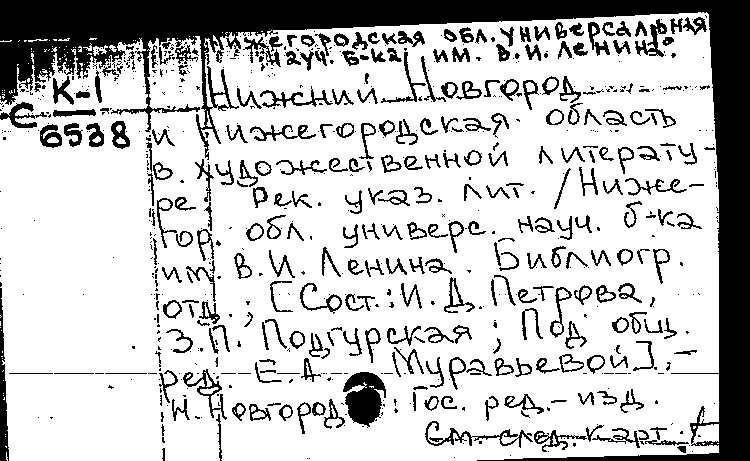 Нижегородская обл. универсальная
науч. б-ка им. В. И. Ленина.
К-1
С 6538
Нижний Новгород
и Нижегородская область
в художественной литерату-
ре: Рек. указ. лит. / Ниже-
гор. обл. универс. науч. б-ка
им. В. И. Ленина. Библиогр.
отд.; [Сост.: И. Д. Петрова,
З. П. Подгурская; Под общ.
ред. Е. А. Муравьевой]. -
Н. Новгород : Гос. ред.-изд.
См. след. карт.